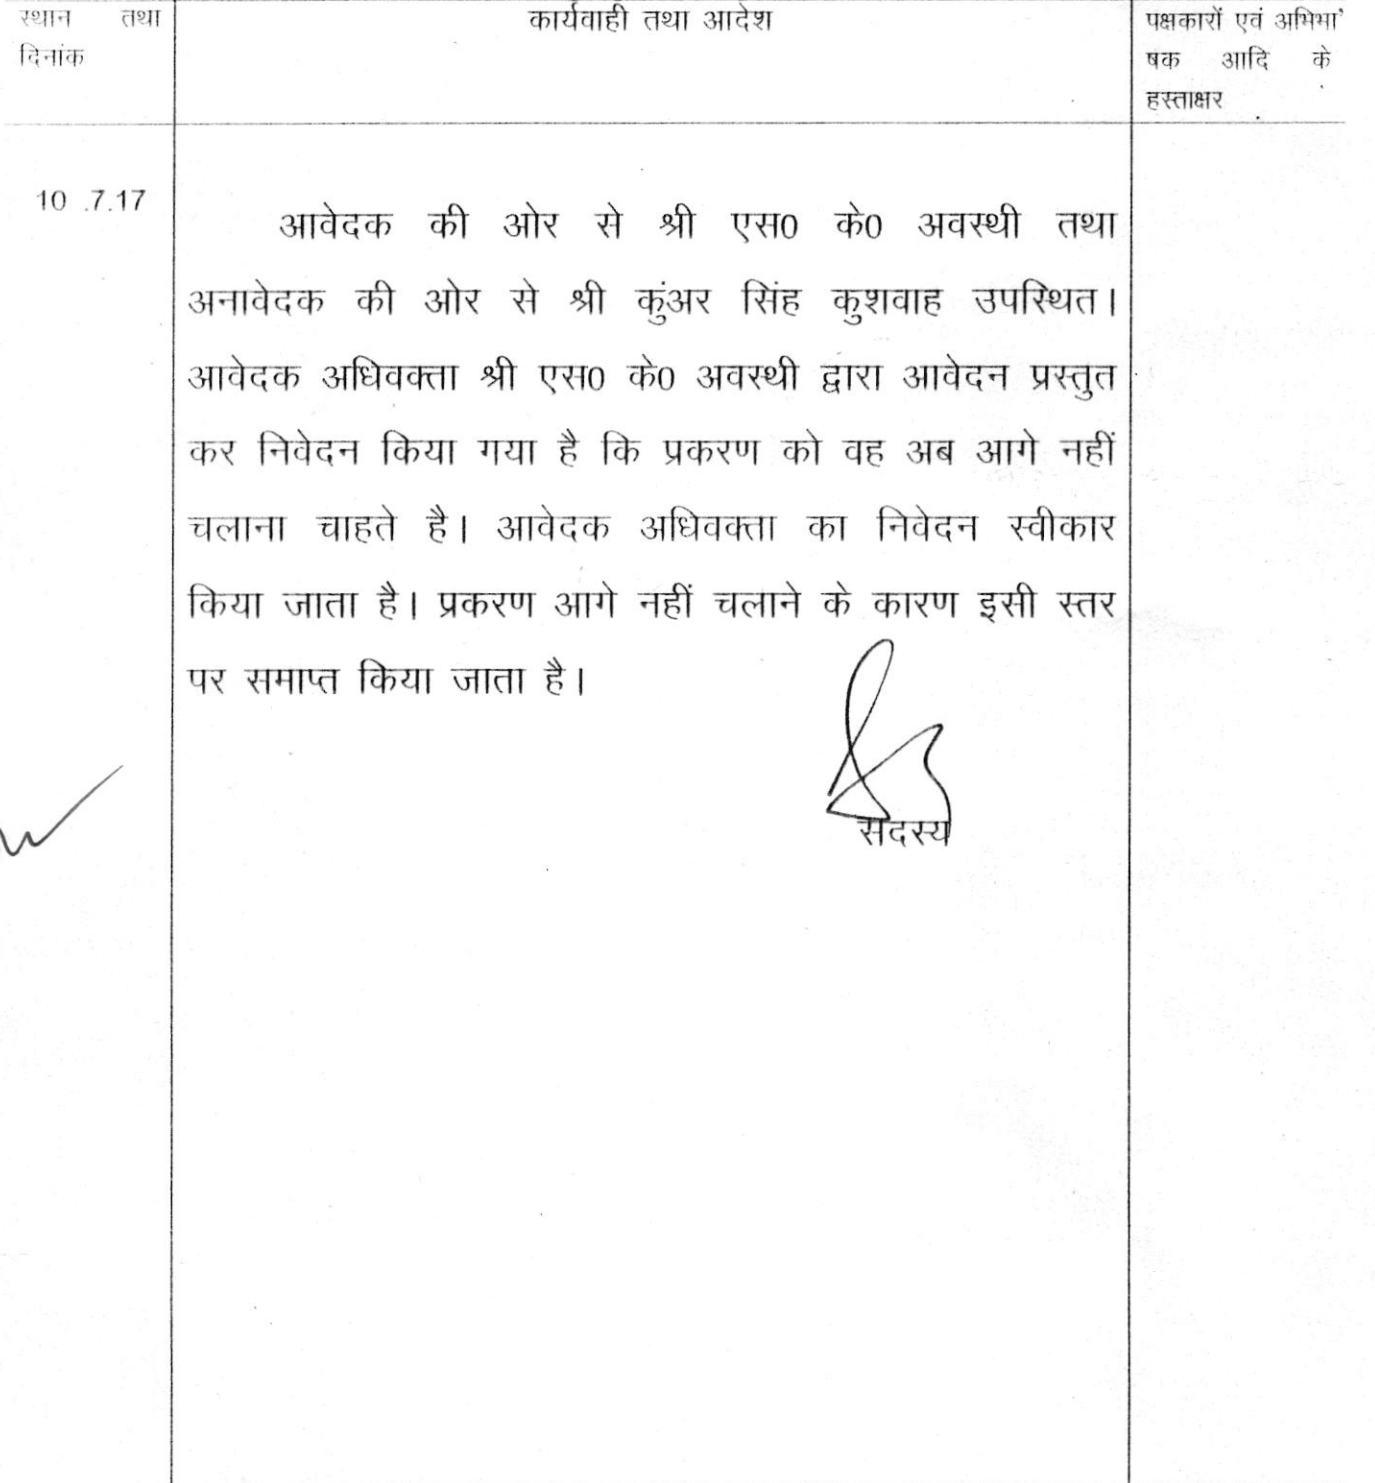 स्थान तथा
दिनांक
कार्यवाही तथा आदेश
पक्षकारों एवं अभिभा'
षक आदि के
हस्ताक्षर
10 .7.17
आवेदक की ओर से श्री एस0 के0 अवस्थी तथा
अनावेदक की ओर से श्री कुंअर सिंह कुशवाह उपस्थित।
आवेदक अधिवक्ता श्री एस0 के0 अवस्थी द्वारा आवेदन प्रस्तुत
कर निवेदन किया गया है कि प्रकरण को वह अब आगे नहीं
चलाना चाहते है। आवेदक अधिवक्ता का निवेदन स्वीकार
किया जाता है। प्रकरण आगे नहीं चलाने के कारण इसी स्तर
पर समाप्त किया जाता है।
सदस्य